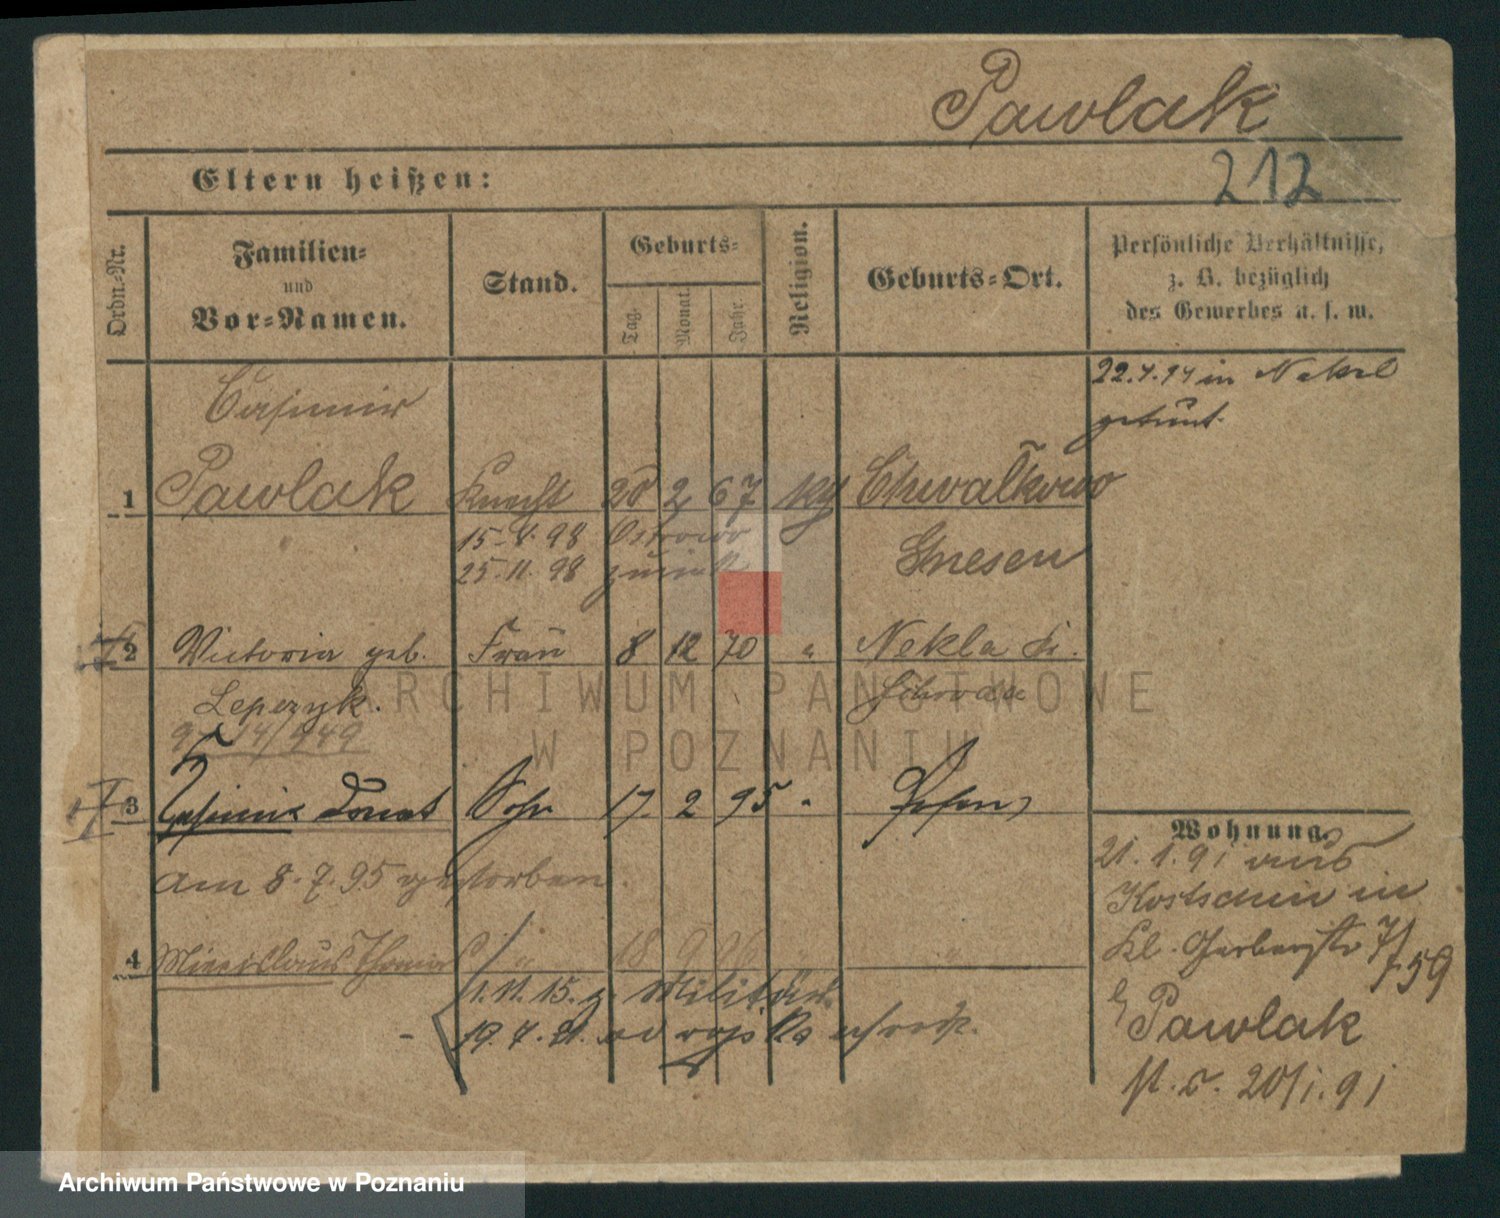 Pawlak
212
Eltern heißen:
Ordn.-Nr.
Familien-
und
Vor-Namen.
Stand.
Geburts-
Tag.
Monat.
Jahr.
Religion.
Geburts-Ort.
Persönliche Verhältnisse,
z. B. bezüglich
des Gewerbes u. s. w.
22.4.94 in Nekel
getraut.
Casimir
1 Pawlak Knecht 20 2 67 Chwalkowo
15.8.98 Ostrowo
25.11.98 zurück
Gnesen
2 Victoria geb. Frau 8 12 70 " Nekla Kr.
Leperzyk. Schroda
14/949
3 Casimir Donat Sohn 17. 2 95 " Posen
am 8.7.95 gestorben.
4 Miecislaus Thomas " 18 9 96 " "
1.11.15. z. Militär
19.7.21.
Wohnung.
21.1.91 aus
Kostschin in
Kl. Gerberstr 7/
759
Pawlak
20/1.91
ARCHIWUM PAŃSTWOWE
W POZNANIU
Archiwum Państwowe w Poznaniu